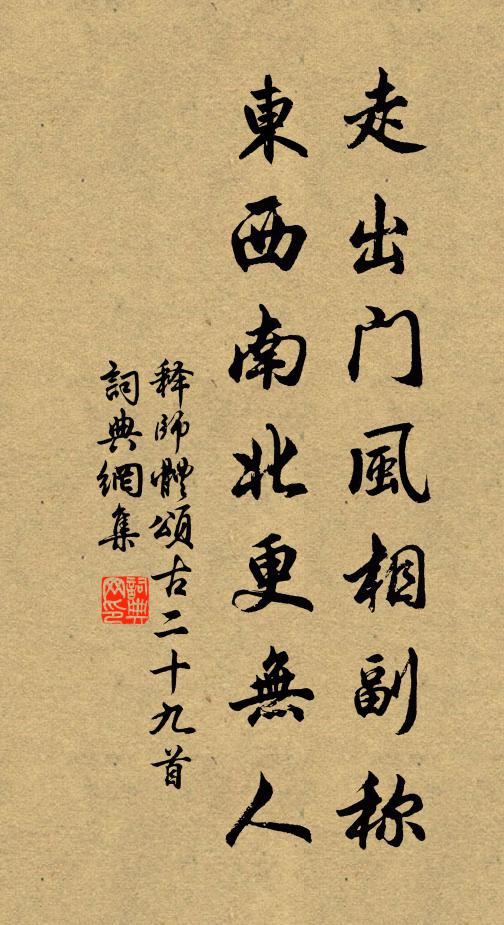 走出门風相副称
東西南北更無人
释師體頌古二十九首
詞典網集
詞典网印